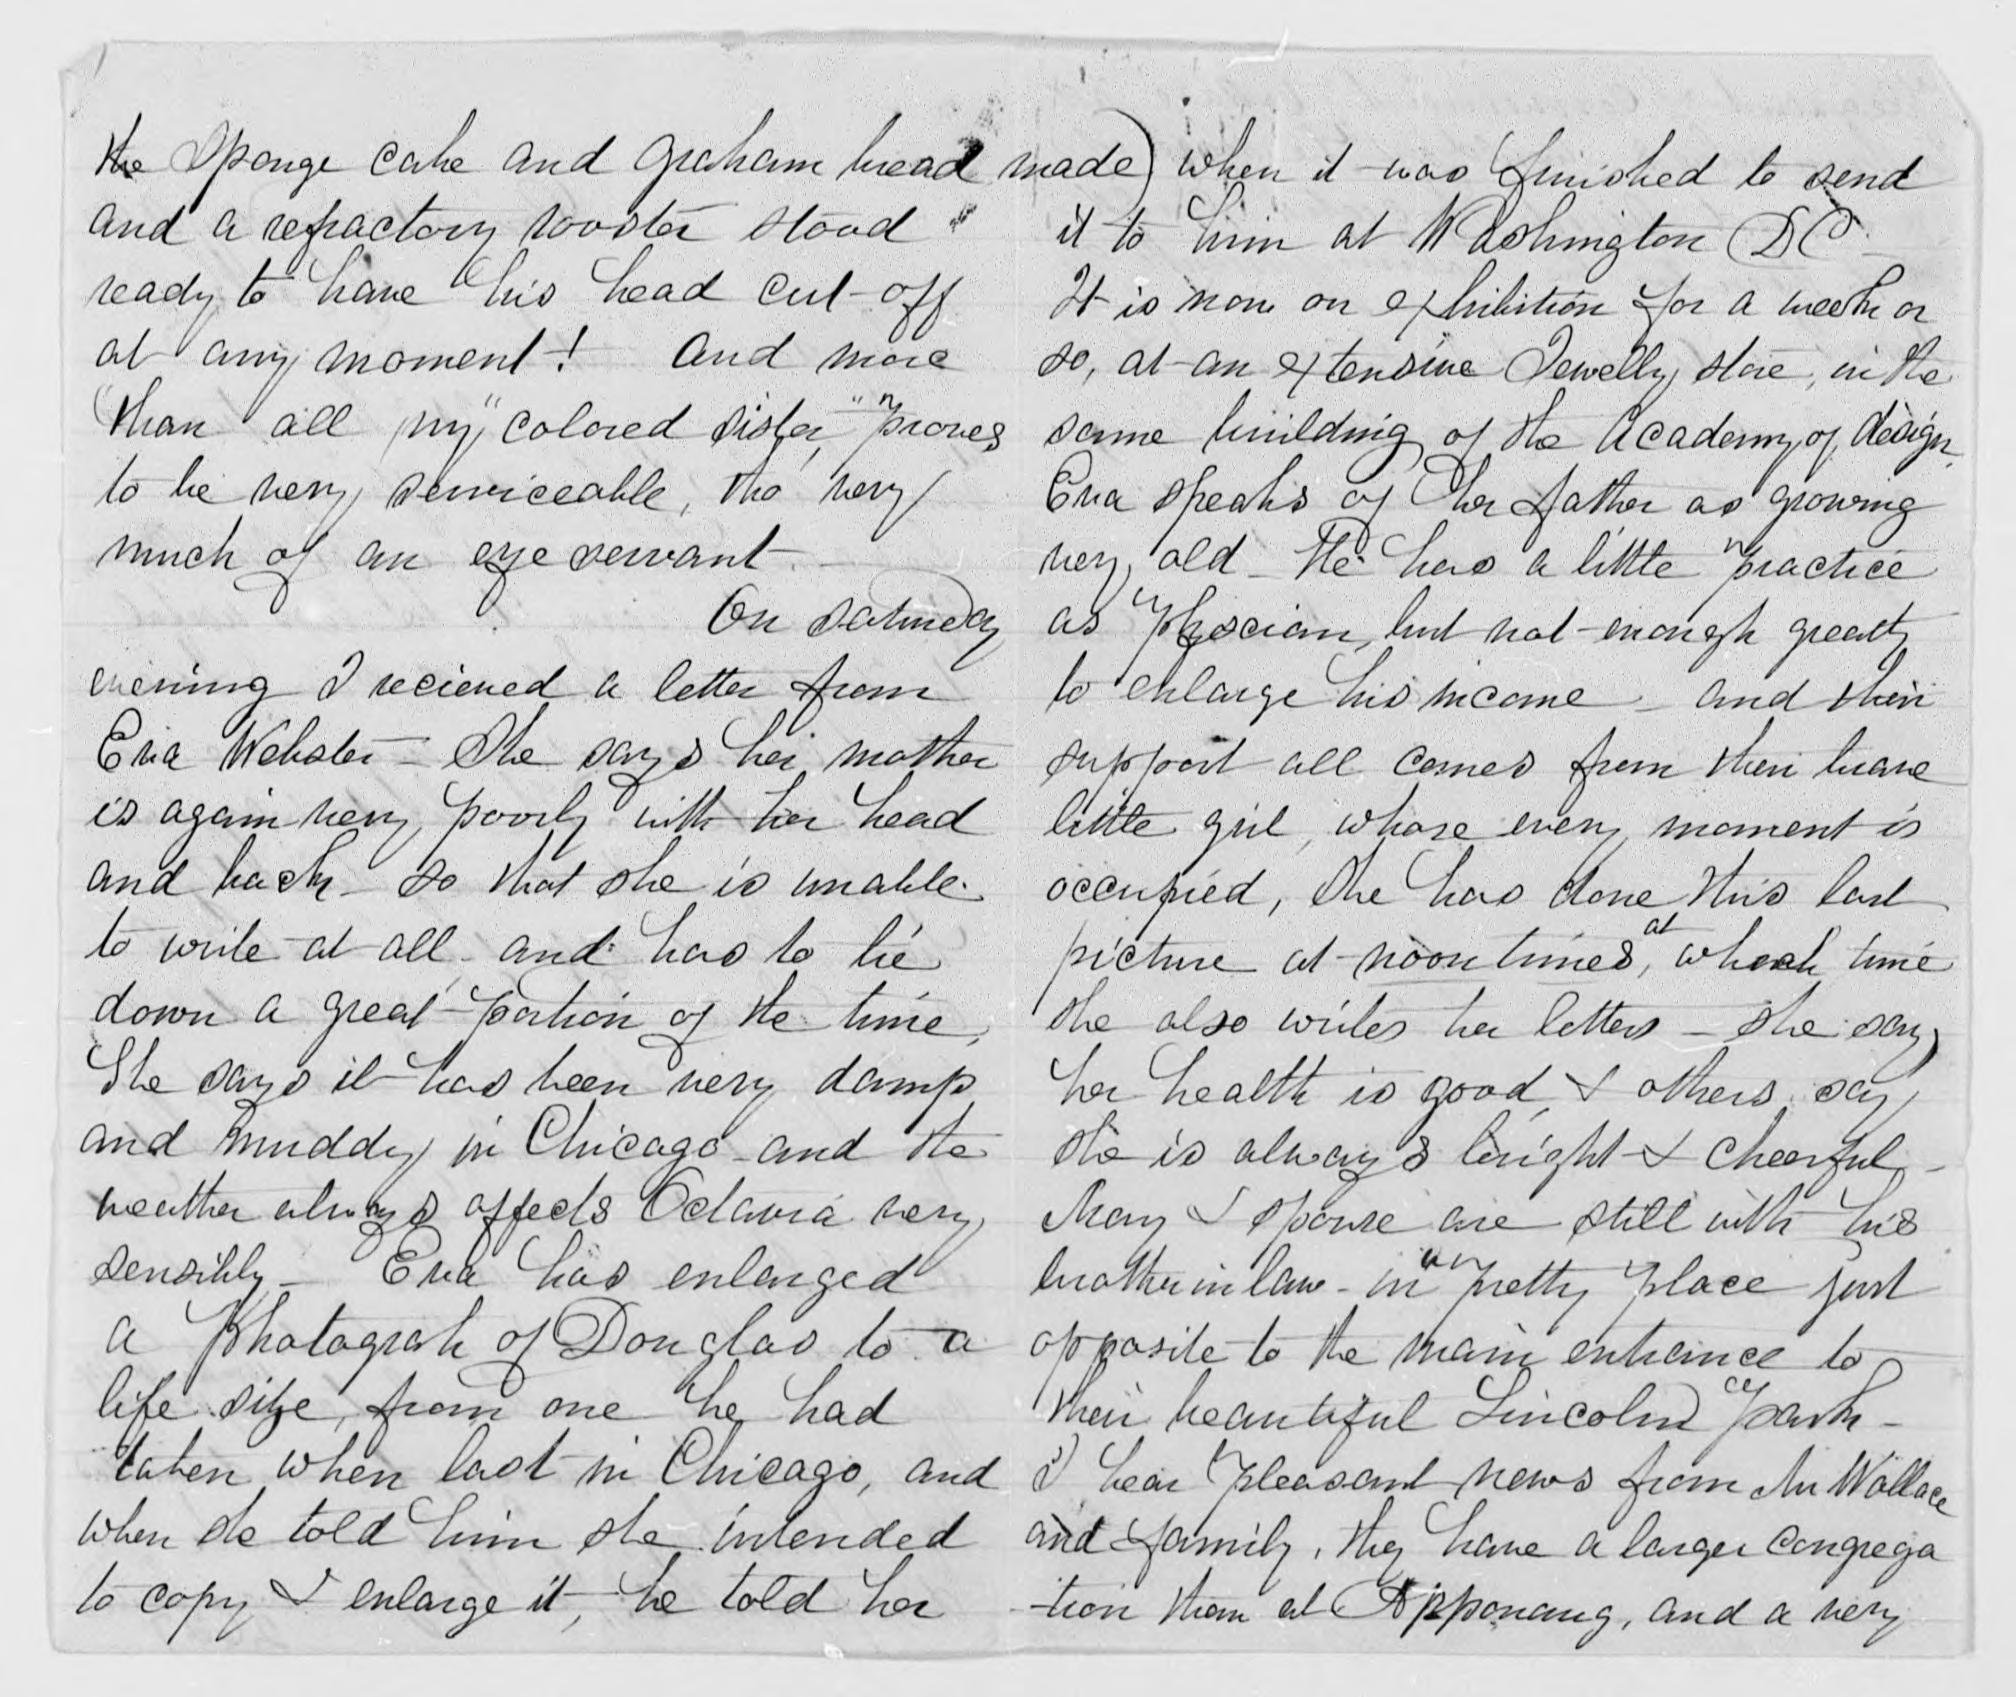 the Sponge cake and Graham bread made)
and a refractory rooster stood
ready to have his head cut off
at any moment! And more
than all my "colored sister," proves
to be very serviceable, tho' very
much of an eye servant.
On Saturday
evening I recieved a letter from
Eva Webster — She says her mother
is again very poorly with her head
and back — so that she is unable
to write at all — and has to lie
down a great portion of the time,
She says it has been very damp
and muddy in Chicago and the
weather always affects Octavia very
sensibly — Eva has enlarged
a Photograh of Douglas to a
life size, from one he had
taken when last in Chicago, and
when she told him she intended
to copy & enlarge it, he told her
when it was finished to send
it to him at Washington DC.
It is now on exhibition for a week or
so, at an extensive Jewelly store, in the
same building of the Academy of design.
Eva speaks of her father as growing
very old — He has a little practice
as Physcian, but not enough greatly
to enlarge his income — and their
support all comes from their brave
little girl, whose every moment is
occupied, She has done this last
picture at noon times, at which time
she also writes her letters — she says
her health is good, & others say
she is always bright & cheerful —
Mary & spouse are still with his
brother in law — in a pretty place just
opposite to the main entrance to
their beautiful Lincoln Park —
I hear pleasant news from Mr Wallace
and family, they have a larger congrega
-tion than at Apponaug, and a very